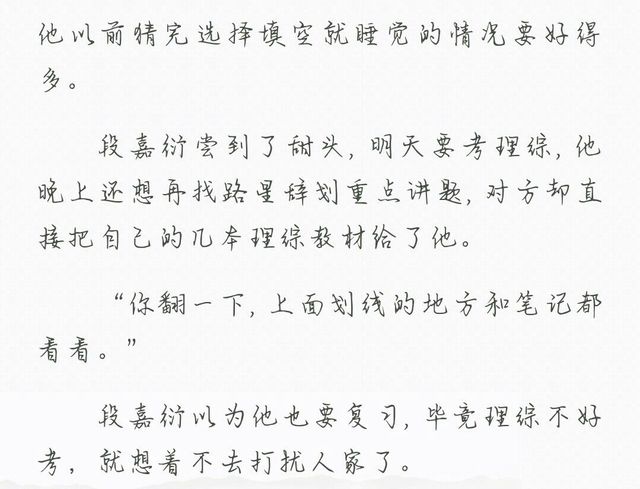 他以前猜完选择填空就睡觉的情况要好得
多。
段嘉衍尝到了甜头,明天要考理综,他
晚上还想再找路星辞划重点讲题,对方却直
接把自己的几本理综教材给了他。
“你翻一下,上面划线的地方和笔记都
看看。”
段嘉衍以为他也要复习,毕竟理综不好
考,就想着不去打扰人家了。